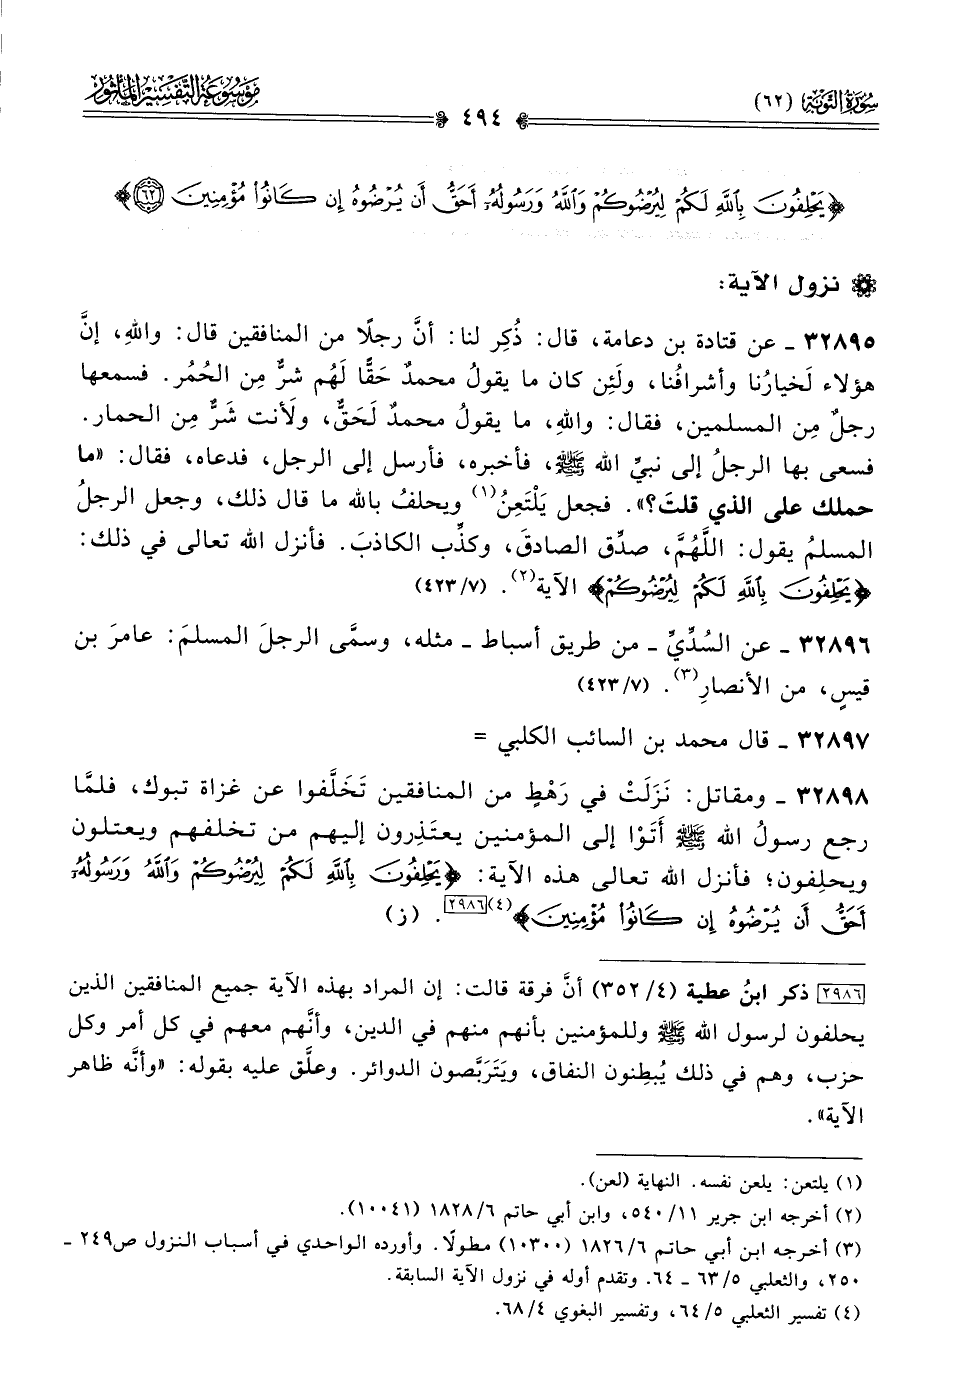 سورة التوبة (٦٢)
٤٩٤
موسوعة التفسير المأثور
﴿يَحْلِفُونَ بِٱللَّهِ لَكُمْ لِيُرْضُوكُمْ وَٱللَّهُ وَرَسُولُهُۥٓ أَحَقُّ أَن يُرْضُوهُ إِن كَانُوا۟ مُؤْمِنِينَ ٦٢﴾
نزول الآية:
٣٢٨٩٥ ـ عن قتادة بن دعامة، قال: ذُكِر لنا: أنَّ رجلًا من المنافقين قال: واللهِ، إنَّ
هؤلاء لَخيارُنا وأشرافُنا، ولَئِن كان ما يقولُ محمدٌ حَقًّا لَهُم شرٌّ مِن الحُمُر. فسمعها
رجلٌ مِن المسلمين، فقال: واللهِ، ما يقولُ محمدٌ لَحَقٌّ، ولَأنت شَرٌّ مِن الحمار.
فسعى بها الرجلُ إلى نبيِّ الله ﷺ، فأخبره، فأرسل إلى الرجل، فدعاه، فقال: «ما
حملك على الذي قلتَ؟». فجعل يَلْتَعِنُ(١) ويحلفُ بالله ما قال ذلك، وجعل الرجلُ
المسلمُ يقول: اللَّهُمَّ، صدِّق الصادقَ، وكذِّب الكاذبَ. فأنزل الله تعالى في ذلك:
﴿يَحْلِفُونَ بِٱللَّهِ لَكُمْ لِيُرْضُوكُمْ﴾ الآية(٢). (٤٢٣/٧)
٣٢٨٩٦ ـ عن السُّدِّيِّ ـ من طريق أسباط ـ مثله، وسمَّى الرجلَ المسلمَ: عامرَ بن
قيسٍ، من الأنصارِ(٣). (٤٢٣/٧)
٣٢٨٩٧ ـ قال محمد بن السائب الكلبي =
٣٢٨٩٨ ـ ومقاتل: نَزَلَتْ في رَهْطٍ من المنافقين تَخَلَّفوا عن غزاة تبوك، فلمَّا
رجع رسولُ الله ﷺ أَتَوْا إلى المؤمنين يعتَذِرون إليهم من تخلفهم ويعتلون
ويحلِفون؛ فأنزل الله تعالى هذه الآية: ﴿يَحْلِفُونَ بِٱللَّهِ لَكُمْ لِيُرْضُوكُمْ وَٱللَّهُ وَرَسُولُهُۥٓ
أَحَقُّ أَن يُرْضُوهُ إِن كَانُوا۟ مُؤْمِنِينَ﴾(٤)[٢٩٨٦]. (ز)
[٢٩٨٦] ذكر ابنُ عطية (٣٥٢/٤) أنَّ فرقة قالت: إن المراد بهذه الآية جميع المنافقين الذين
يحلفون لرسول الله ﷺ وللمؤمنين بأنهم منهم في الدين، وأنَّهم معهم في كل أمر وكل
حزب، وهم في ذلك يُبطِنون النفاق، ويَتَرَبَّصون الدوائر. وعلَّق عليه بقوله: «وأنَّه ظاهر
الآية».
(١) يلتعن: يلعن نفسه. النهاية (لعن).
(٢) أخرجه ابن جرير ٥٤٠/١١، وابن أبي حاتم ١٨٢٨/٦ (١٠٠٤١).
(٣) أخرجه ابن أبي حاتم ١٨٢٦/٦ (١٠٣٠٠) مطولًا. وأورده الواحدي في أسباب النزول ص٢٤٩ ـ
٢٥٠، والثعلبي ٦٣/٥ ـ ٦٤. وتقدم أوله في نزول الآية السابقة.
(٤) تفسير الثعلبي ٦٤/٥، وتفسير البغوي ٦٨/٤.